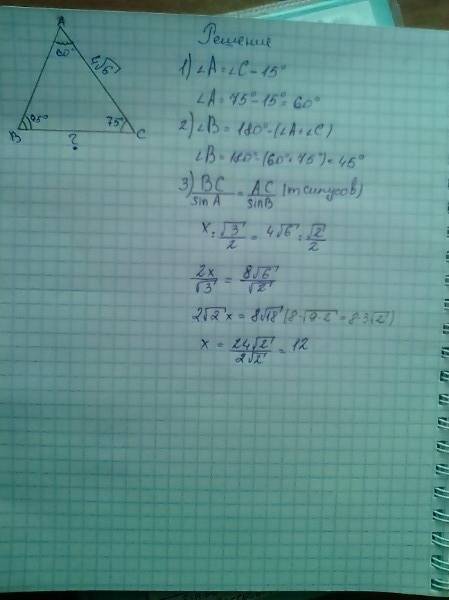 Решение
A
60°
4√6
B
45°
?
75°
C
1) ∠A = ∠C - 15°
∠A = 75° - 15° = 60°
2) ∠B = 180° - (∠A + ∠C)
∠B = 180° - (60° + 75°) = 45°
3) BC/sin A = AC/sin B (т синусов)
x : √3/2 = 4√6 : √2/2
2x/√3 = 8√6/√2
2√2 x = 8√18 (8·√9·2 = 8·3√2)
x = 24√2/2√2 = 12